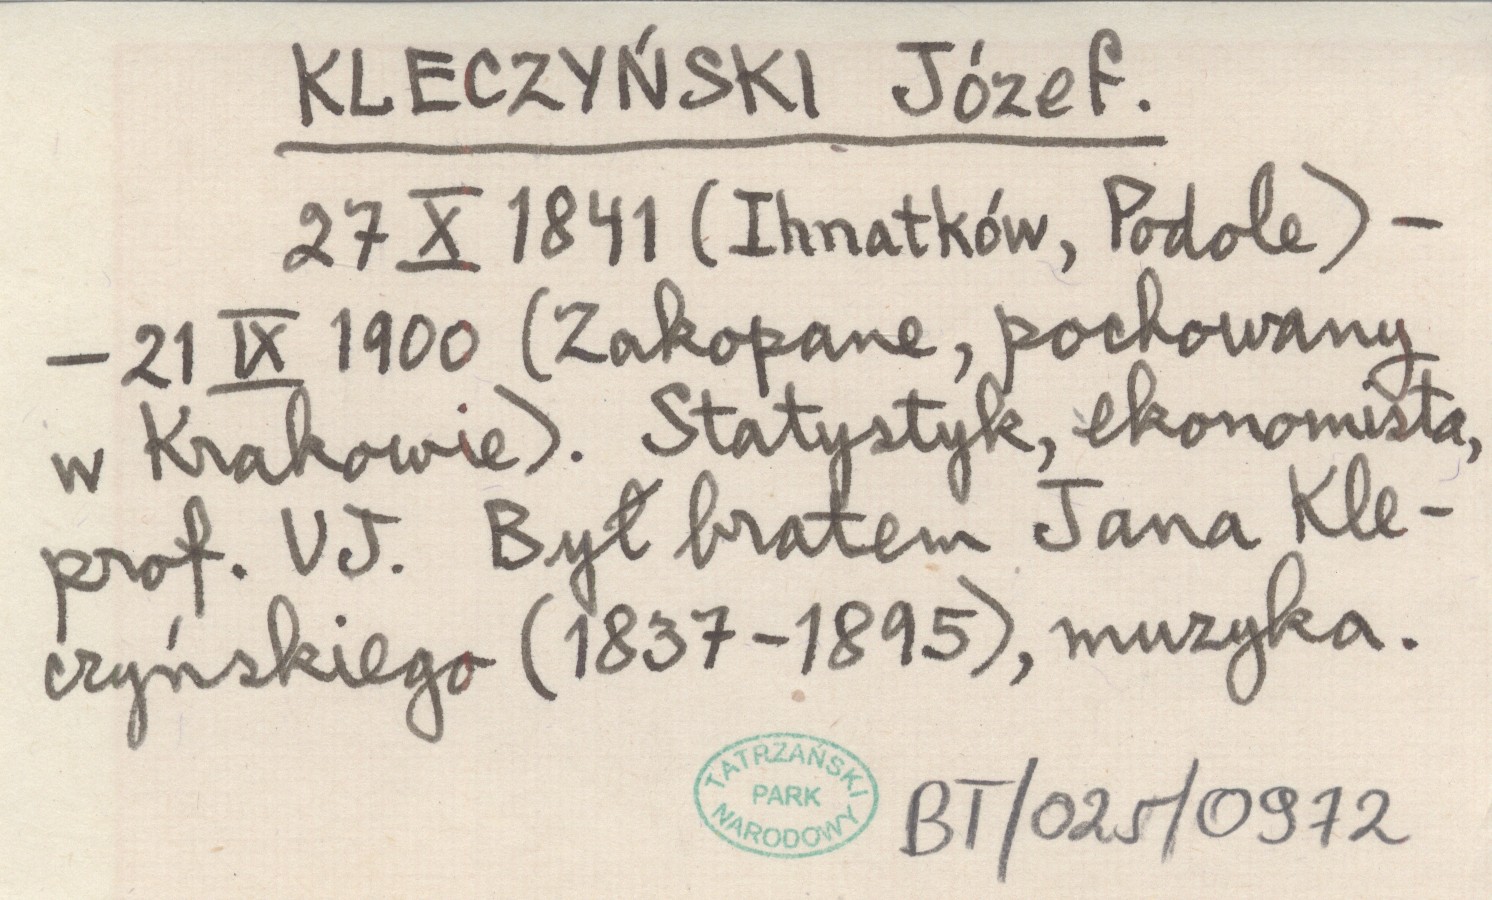 KLECZYŃSKI Józef.
27 X 1841 (Ihnatków, Podole) –
– 21 IX 1900 (Zakopane, pochowany
w Krakowie). Statystyk, ekonomista,
prof. UJ. Był bratem Jana Kle-
czyńskiego (1837–1895), muzyka.
TATRZAŃSKI
PARK
NARODOWY
BT/025/0972